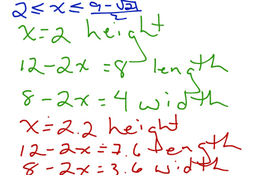 2 ≤ x ≤ (9-√21)/2
x=2 height
12-2x=8 length
8-2x=4 width
x=2.2 height
12-2x=7.6 length
8-2x=3.6 width